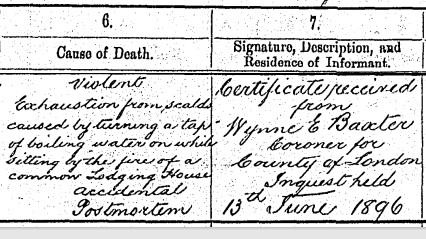 6.
Cause of Death.
Violent
Exhaustion from scalds
caused by turning a tap
of boiling water on while
sitting by the fire of a
common Lodging House
accidental
Postmortem
7.
Signature, Description, and
Residence of Informant.
Certificate received
from
Wynne E Baxter
Coroner for
County of London
Inquest held
13th June 1896